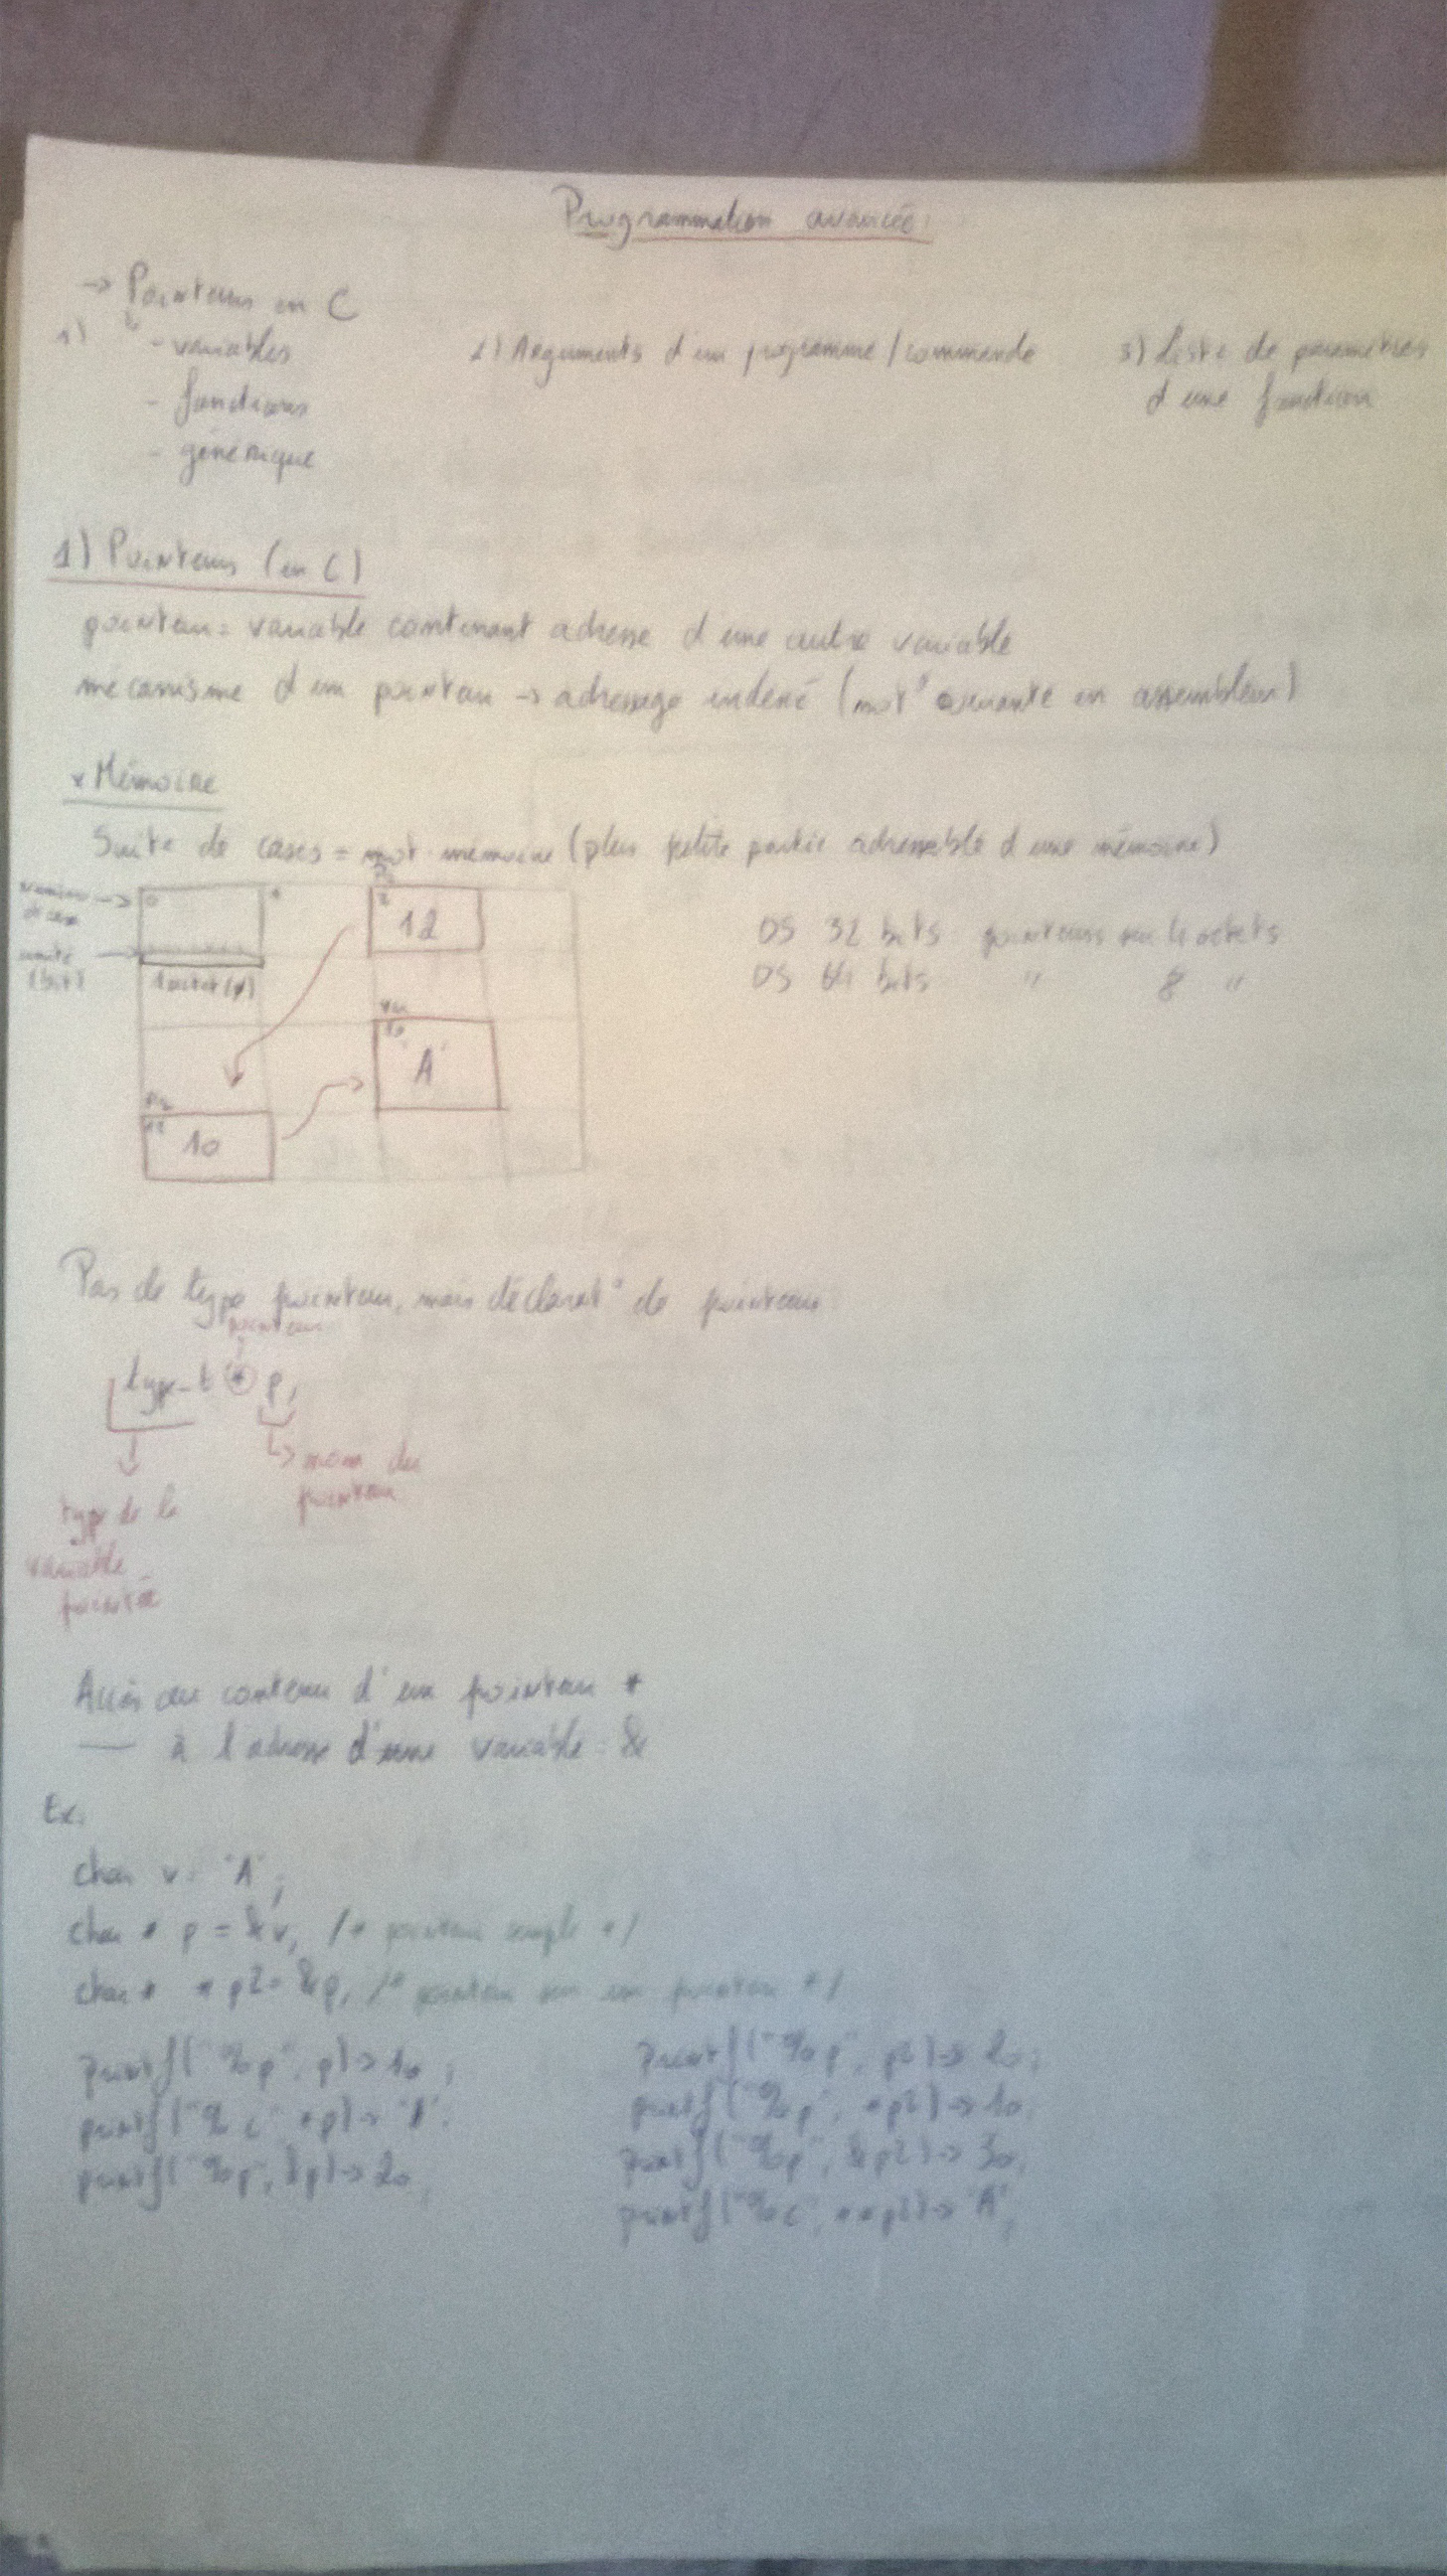 Programmation avancée
→ Pointeurs en C
1) - variables
- fonctions
- générique
2) Arguments d'un programme / commande
3) Liste de paramètres
d'une fonction
1) Pointeurs (en C)
pointeur = variable contenant adresse d'une autre variable
mécanisme d'un pointeur → adressage indexé (mot en assembleur)
* Mémoire
Suite de cases = mot mémoire (plus petite partie adressable d'une mémoire)
OS 32 bits pointeurs sur 4 octets
OS 64 bits " 8 "
0
12
10
'A'
12
10
Pas de type pointeur, mais déclarat° de pointeur
pointeur
type_t * p;
nom du
pointeur
type de la
variable
pointée
Accès au contenu d'un pointeur *
— à l'adresse d'une variable : &
Ex:
char v = 'A';
char * p = &v; /* pointeur simple */
char * * p2 = &p; /* pointeur sur un pointeur */
printf("%p", p) → 10;
printf("%c", *p) → 'A';
printf("%p", &p) → 20;
printf("%p", p2) → 20;
printf("%p", *p2) → 10;
printf("%p", &p2) → 30;
printf("%c", **p2) → 'A';